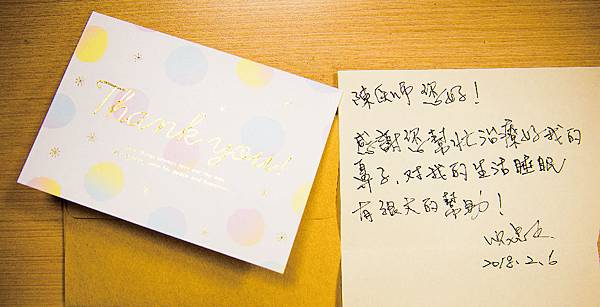 Thank you!
陳医师 您好!
感謝您幫忙治療好我的
鼻子,对我的生活睡眠
有很大的幫助!
2018.2.6